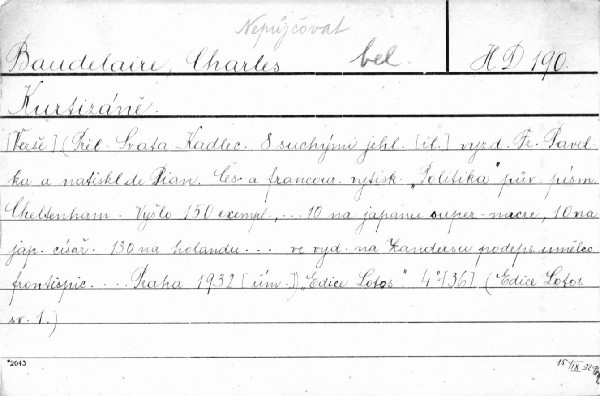 Nepůjčovat
Baudelaire, Charles bel. HD 190.
Kurtizáně.
[Verše] (Přel. Svata Kadlec. 8 suchými jehl. [il.] vyzd. Fr. Pavel-
ka a natiskl de Pian. Čes a francouz. vytisk. „Politika" pův. písm.
Cheltenham. Vyšlo 150 exempl., ... 10 na japanu super-nacre, 10 na
jap. císař. 130 na holandu ... ve vyd. na Zandersu podeps. umělce
frontispic. .... Praha 1932 [úm.]) „Edice Lotos" 4° [36]. (Edice Lotos
sv. 1.)
*2043 15/IX 32